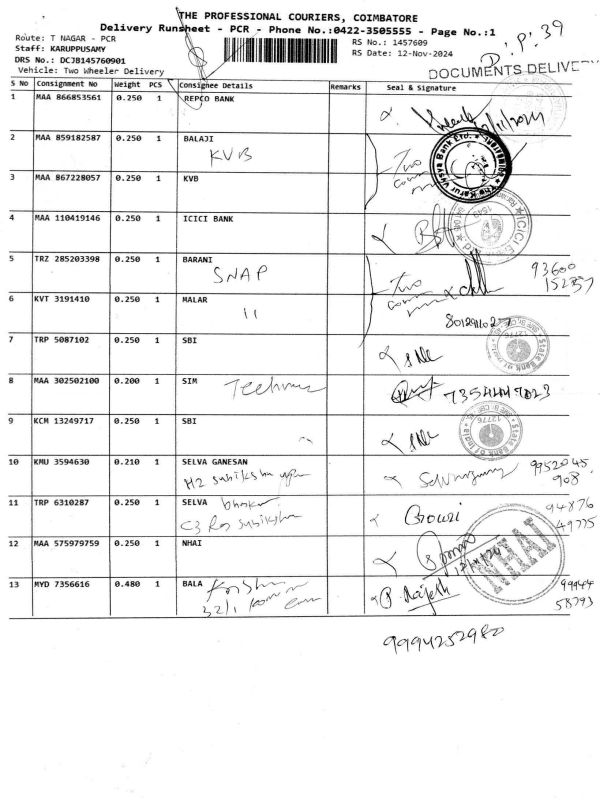 THE PROFESSIONAL COURIERS, COIMBATORE
Delivery Runsheet - PCR - Phone No.:0422-3505555 - Page No.:1
D.P. 39
Route: T NAGAR - PCR
RS No.: 1457609
Staff: KARUPPUSAMY
RS Date: 12-Nov-2024
DRS No.: DCJB145760901
Vehicle: Two Wheeler Delivery
DOCUMENTS DELIVE
S No Consignment No Weight PCS Consignee Details Remarks Seal & Signature
1 MAA 866853561 0.250 1 REPCO BANK
2 MAA 859182587 0.250 1 BALAJI
KVB Two
The Karur Vysya Bank Ltd.
3 MAA 867228057 0.250 1 KVB
4 MAA 110419146 0.250 1 ICICI BANK
ICICI
5 TRZ 285203398 0.250 1 BARANI
SNAP Two
93600
6 KVT 3191410 0.250 1 MALAR
11
7 TRP 5087102 0.250 1 SBI
State Bank of
12776
8 MAA 302502100 0.200 1 SIM
9 KCM 13249717 0.250 1 SBI
State Bank of India
12776
10 KMU 3594630 0.210 1 SELVA GANESAN
H2 9952045
908
11 TRP 6310287 0.250 1 SELVA
C3 Gowri 94876
49775
12 MAA 575979759 0.250 1 NHAI
NHAI
13 MYD 7356616 0.480 1 BALA
32/1 P. Rajesh 99944
58793
9994252980